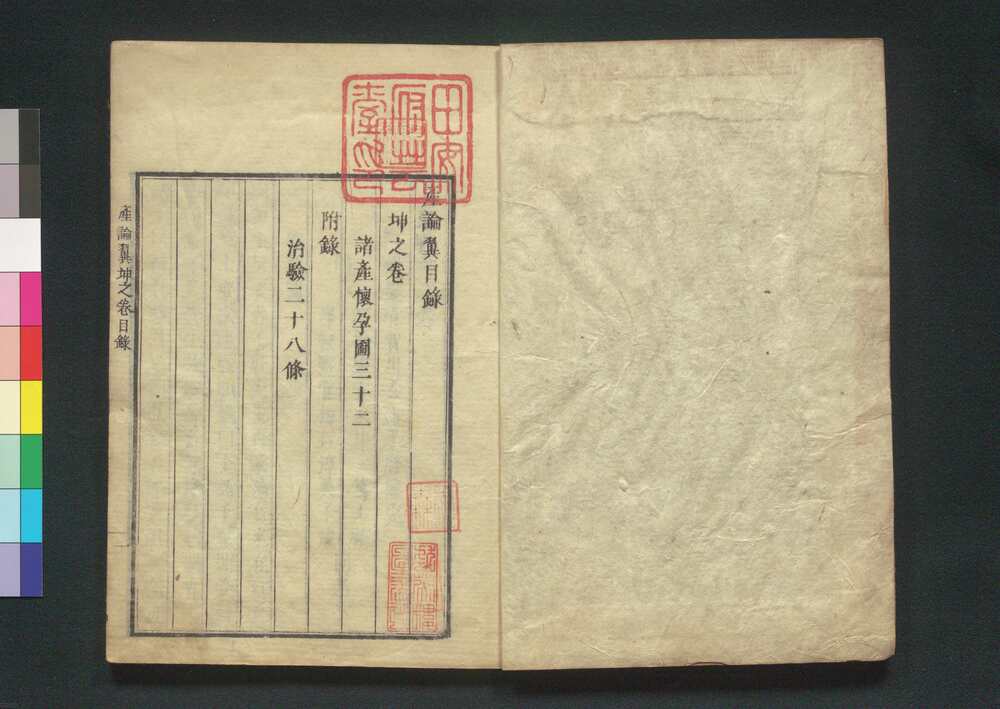 產論翼目錄
坤之卷
諸產懷孕圖三十二
附錄
治驗二十八條
產論翼坤之卷目錄
田安
府芸
臺印